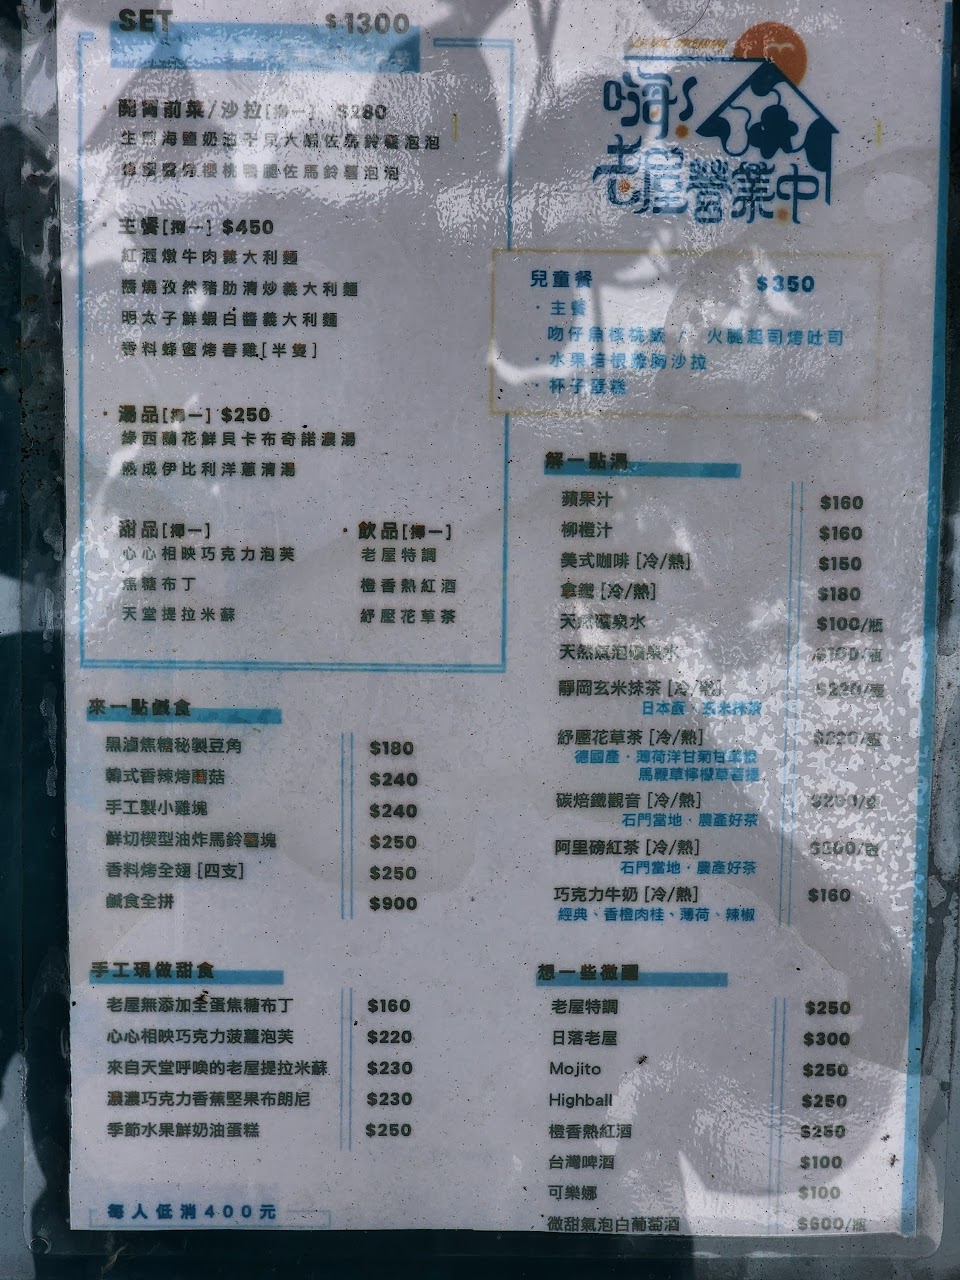 SET $1300
・開胃前菜/沙拉[擇一] $280
生煎海鹽奶油干貝大蝦佐馬鈴薯泡泡
櫻桃鴨腿佐馬鈴薯泡泡
・主餐[擇一] $450
紅酒燉牛肉義大利麵
醬燒孜然豬肋清炒義大利麵
明太子鮮蝦白醬義大利麵
香料蜂蜜烤春雞[半隻]
・湯品[擇一] $250
綠西蘭花鮮貝卡布奇諾濃湯
熟成伊比利洋蔥清湯
・甜品[擇一]
心心相映巧克力泡芙
焦糖布丁
天堂提拉米蘇
・飲品[擇一]
老屋特調
橙香熱紅酒
紓壓花草茶
來一點鹹食
黑滷焦糖秘製豆角 $180
韓式香辣烤蘑菇 $240
手工製小雞塊 $240
鮮切楔型油炸馬鈴薯塊 $250
香料烤全翅 [四支] $250
鹹食全拼 $900
手工現做甜食
老屋無添加全蛋焦糖布丁 $160
心心相映巧克力菠蘿泡芙 $220
來自天堂呼喚的老屋提拉米蘇 $230
濃濃巧克力香蕉堅果布朗尼 $230
季節水果鮮奶油蛋糕 $250
每人低消400元
嗨!
老屋營業中
兒童餐 $350
・主餐
吻仔魚 / 火腿起司烤吐司
・水果培根雞胸沙拉
・杯子蛋糕
解一點渴
蘋果汁 $160
柳橙汁 $160
美式咖啡 [冷/熱] $150
拿鐵 [冷/熱] $180
天然礦泉水 $100/瓶
天然氣泡礦泉水
靜岡玄米抹茶 [冷/熱] $220/壺
日本產・玄米抹茶
紓壓花草茶 [冷/熱] $220/壺
德國產・薄荷洋甘菊甘草根
馬鞭草檸檬草菩提
碳焙鐵觀音 [冷/熱]
石門當地・農產好茶
阿里磅紅茶 [冷/熱]
石門當地・農產好茶
巧克力牛奶 [冷/熱] $160
經典、香橙肉桂、薄荷、辣椒
想一些微醺
老屋特調 $250
日落老屋 $300
Mojito $250
Highball $250
橙香熱紅酒 $250
台灣啤酒 $100
可樂娜 $100
微甜氣泡白葡萄酒 $600/瓶